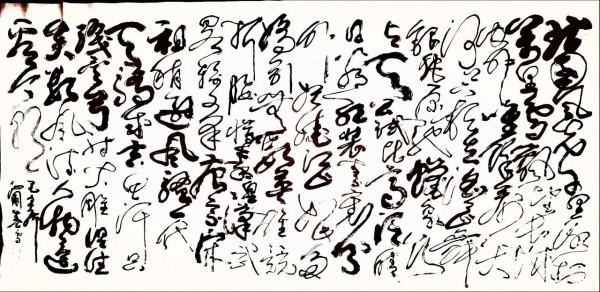 北国风光千里冰封
万里雪飘望长城
内外惟余莽莽大
河上下顿失滔滔山舞
银蛇原驰蜡象欲
与天公试比高须晴
日看红装素裹分
外妖娆江山如此多
娇引无数英雄竞
折腰惜秦皇汉武
略输文采唐宗宋
祖稍逊风骚一代
天骄成吉思汗只
识弯弓射大雕俱往
矣数风流人物还
看今朝